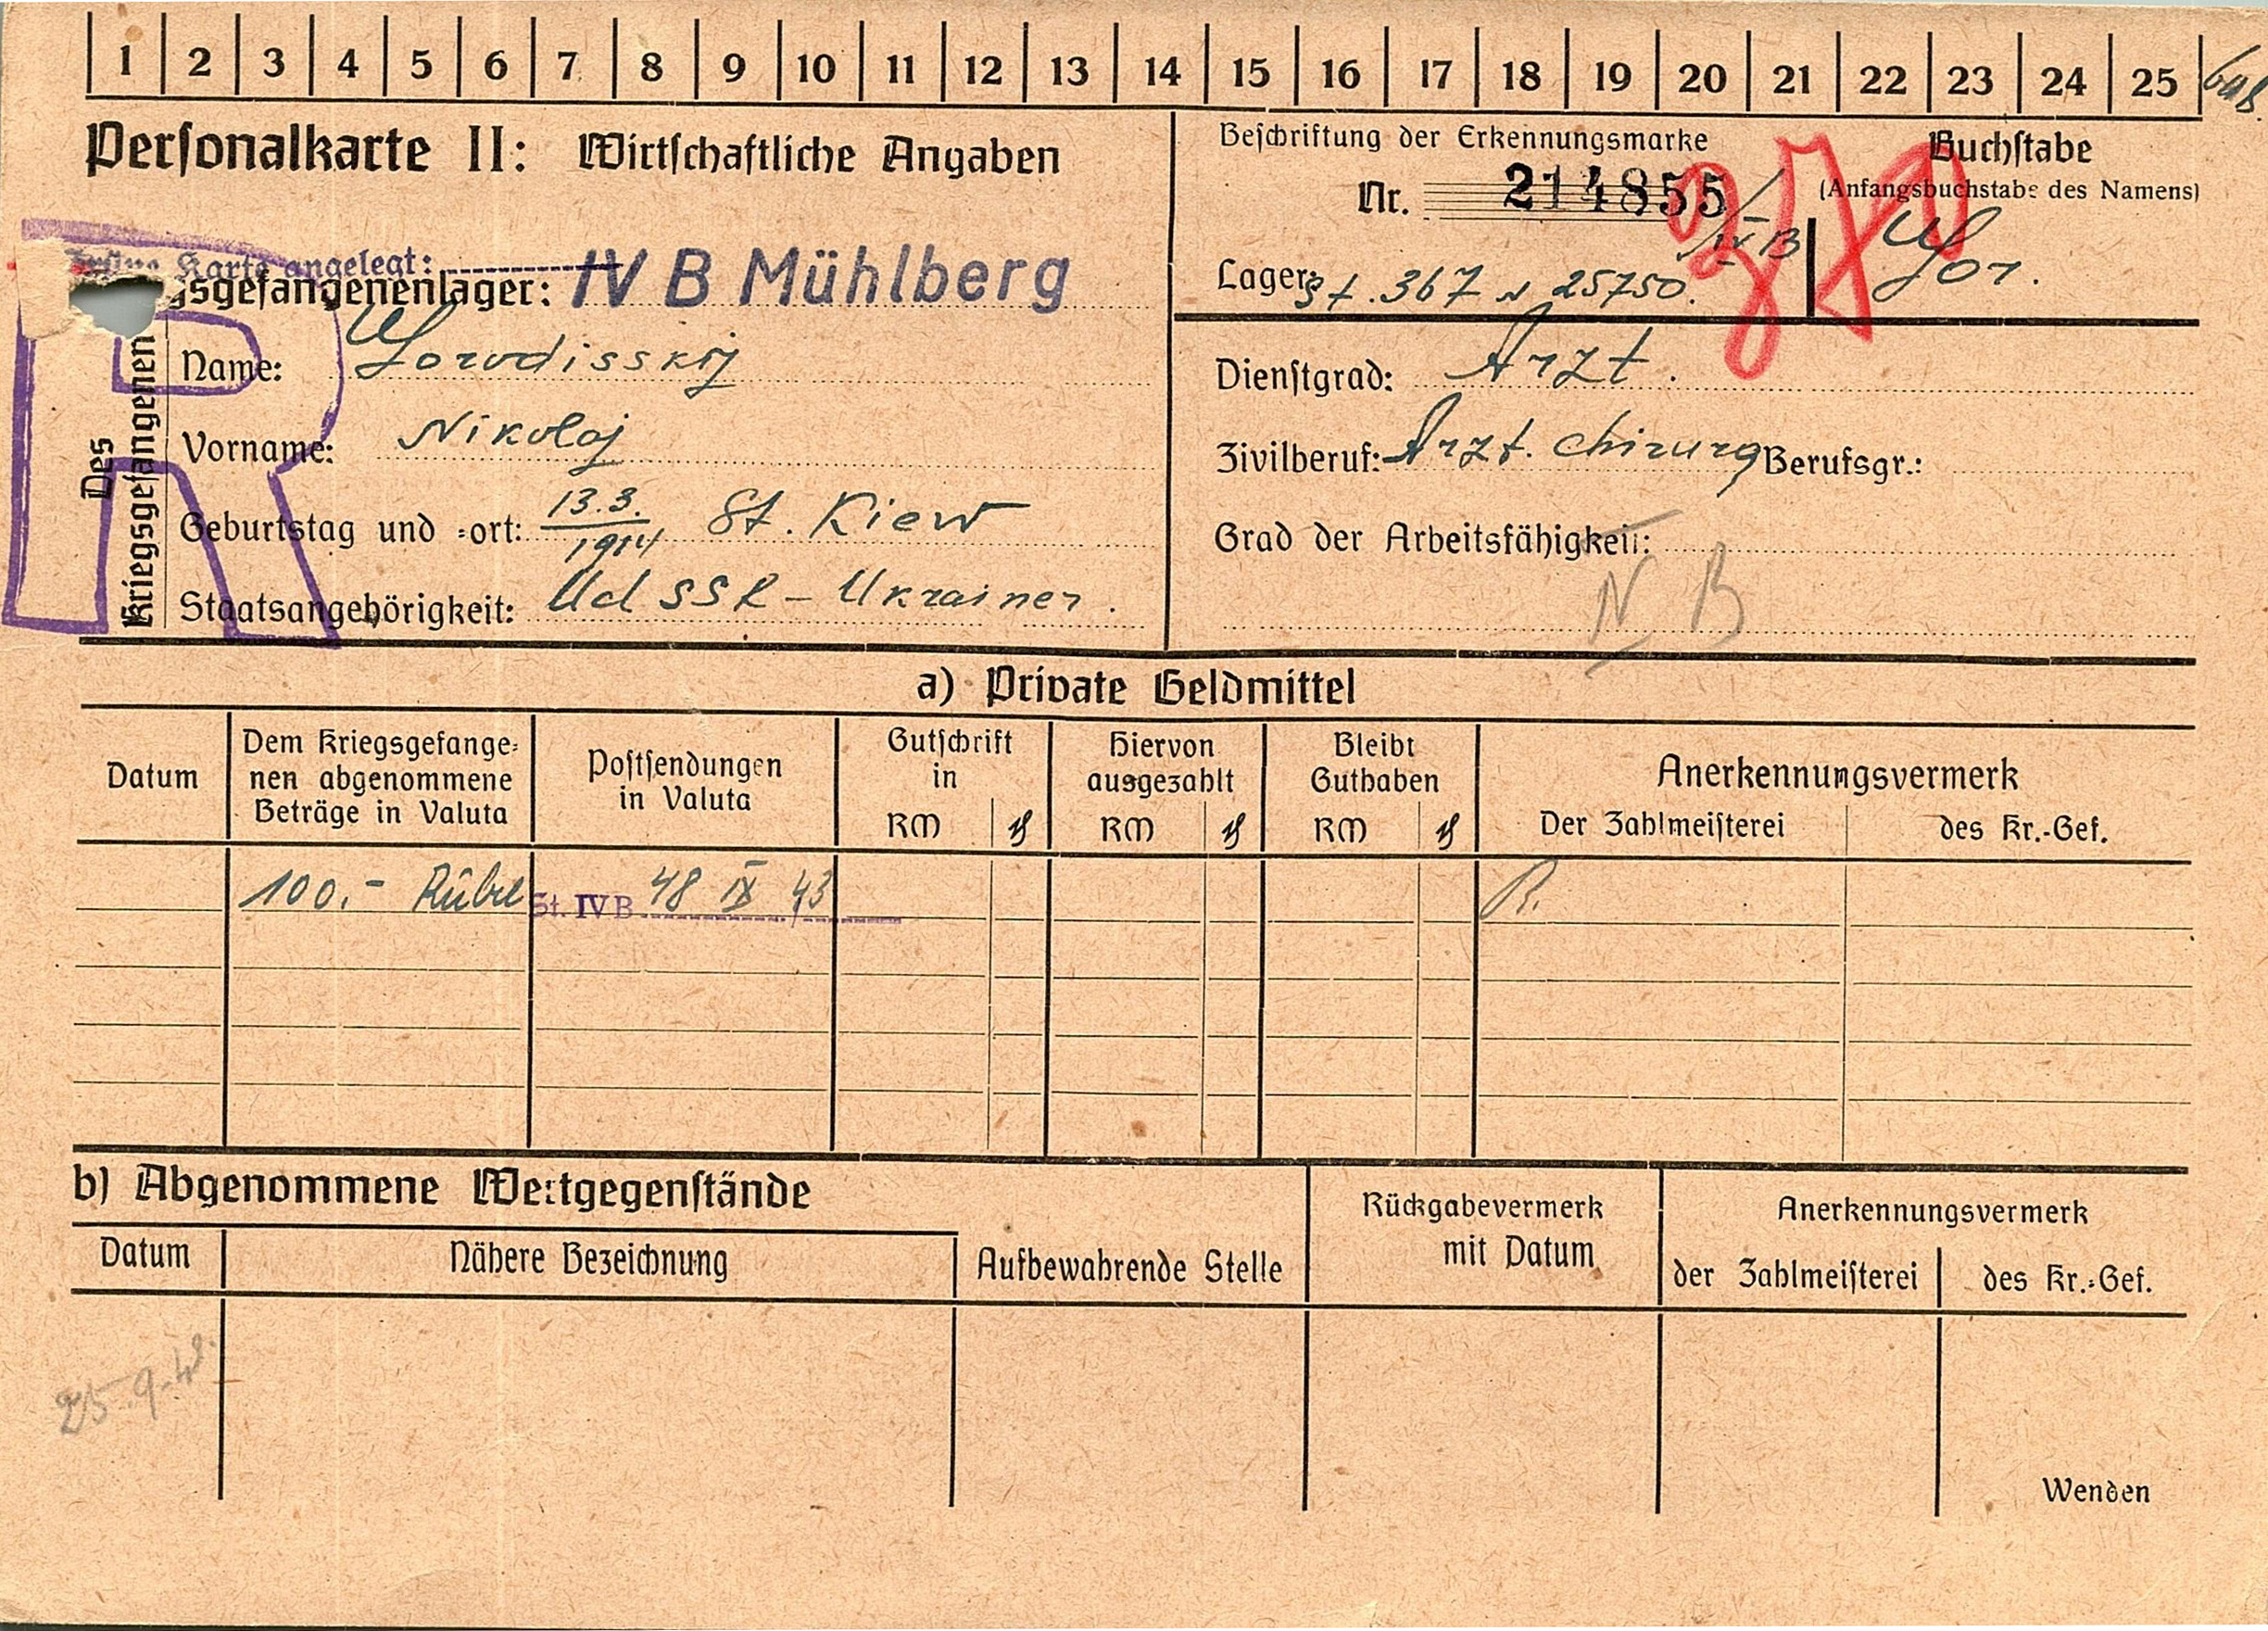 1 2 3 4 5 6 7 8 9 10 11 12 13 14 15 16 17 18 19 20 21 22 23 24 25
Personalkarte II: Wirtschaftliche Angaben
Beschriftung der Erkennungsmarke
Nr. 214855/IV B
Lager: St. 367 N 25750.
Buchstabe
(Anfangsbuchstabe des Namens)
Gor.
Karte angelegt:
sgefangenenlager: IV B Mühlberg
Des Kriegsgefangenen
Name: Gorodisskij
Vorname: Nikolaj
Geburtstag und =ort: 13.3. 1914 St. Kiew
Staatsangehörigkeit: UdSSR - Ukrainer.
Dienstgrad: Arzt.
Zivilberuf: Arzt. Chirurg Berufsgr.:
Grad der Arbeitsfähigkeit:
N B
R
a) Private Geldmittel
Datum
Dem Kriegsgefange=
nen abgenommene
Beträge in Valuta
Postsendungen
in Valuta
Gutschrift
in
RM ₰
Hiervon
ausgezahlt
RM ₰
Bleibt
Guthaben
RM ₰
Anerkennungsvermerk
Der Zahlmeisterei des Kr.-Gef.
100.- Rubel St. IV B 48 IX 43 R.
b) Abgenommene Wertgegenstände
Datum
Nähere Bezeichnung
Aufbewahrende Stelle
Rückgabevermerk
mit Datum
Anerkennungsvermerk
der Zahlmeisterei des Kr.=Gef.
Wenden